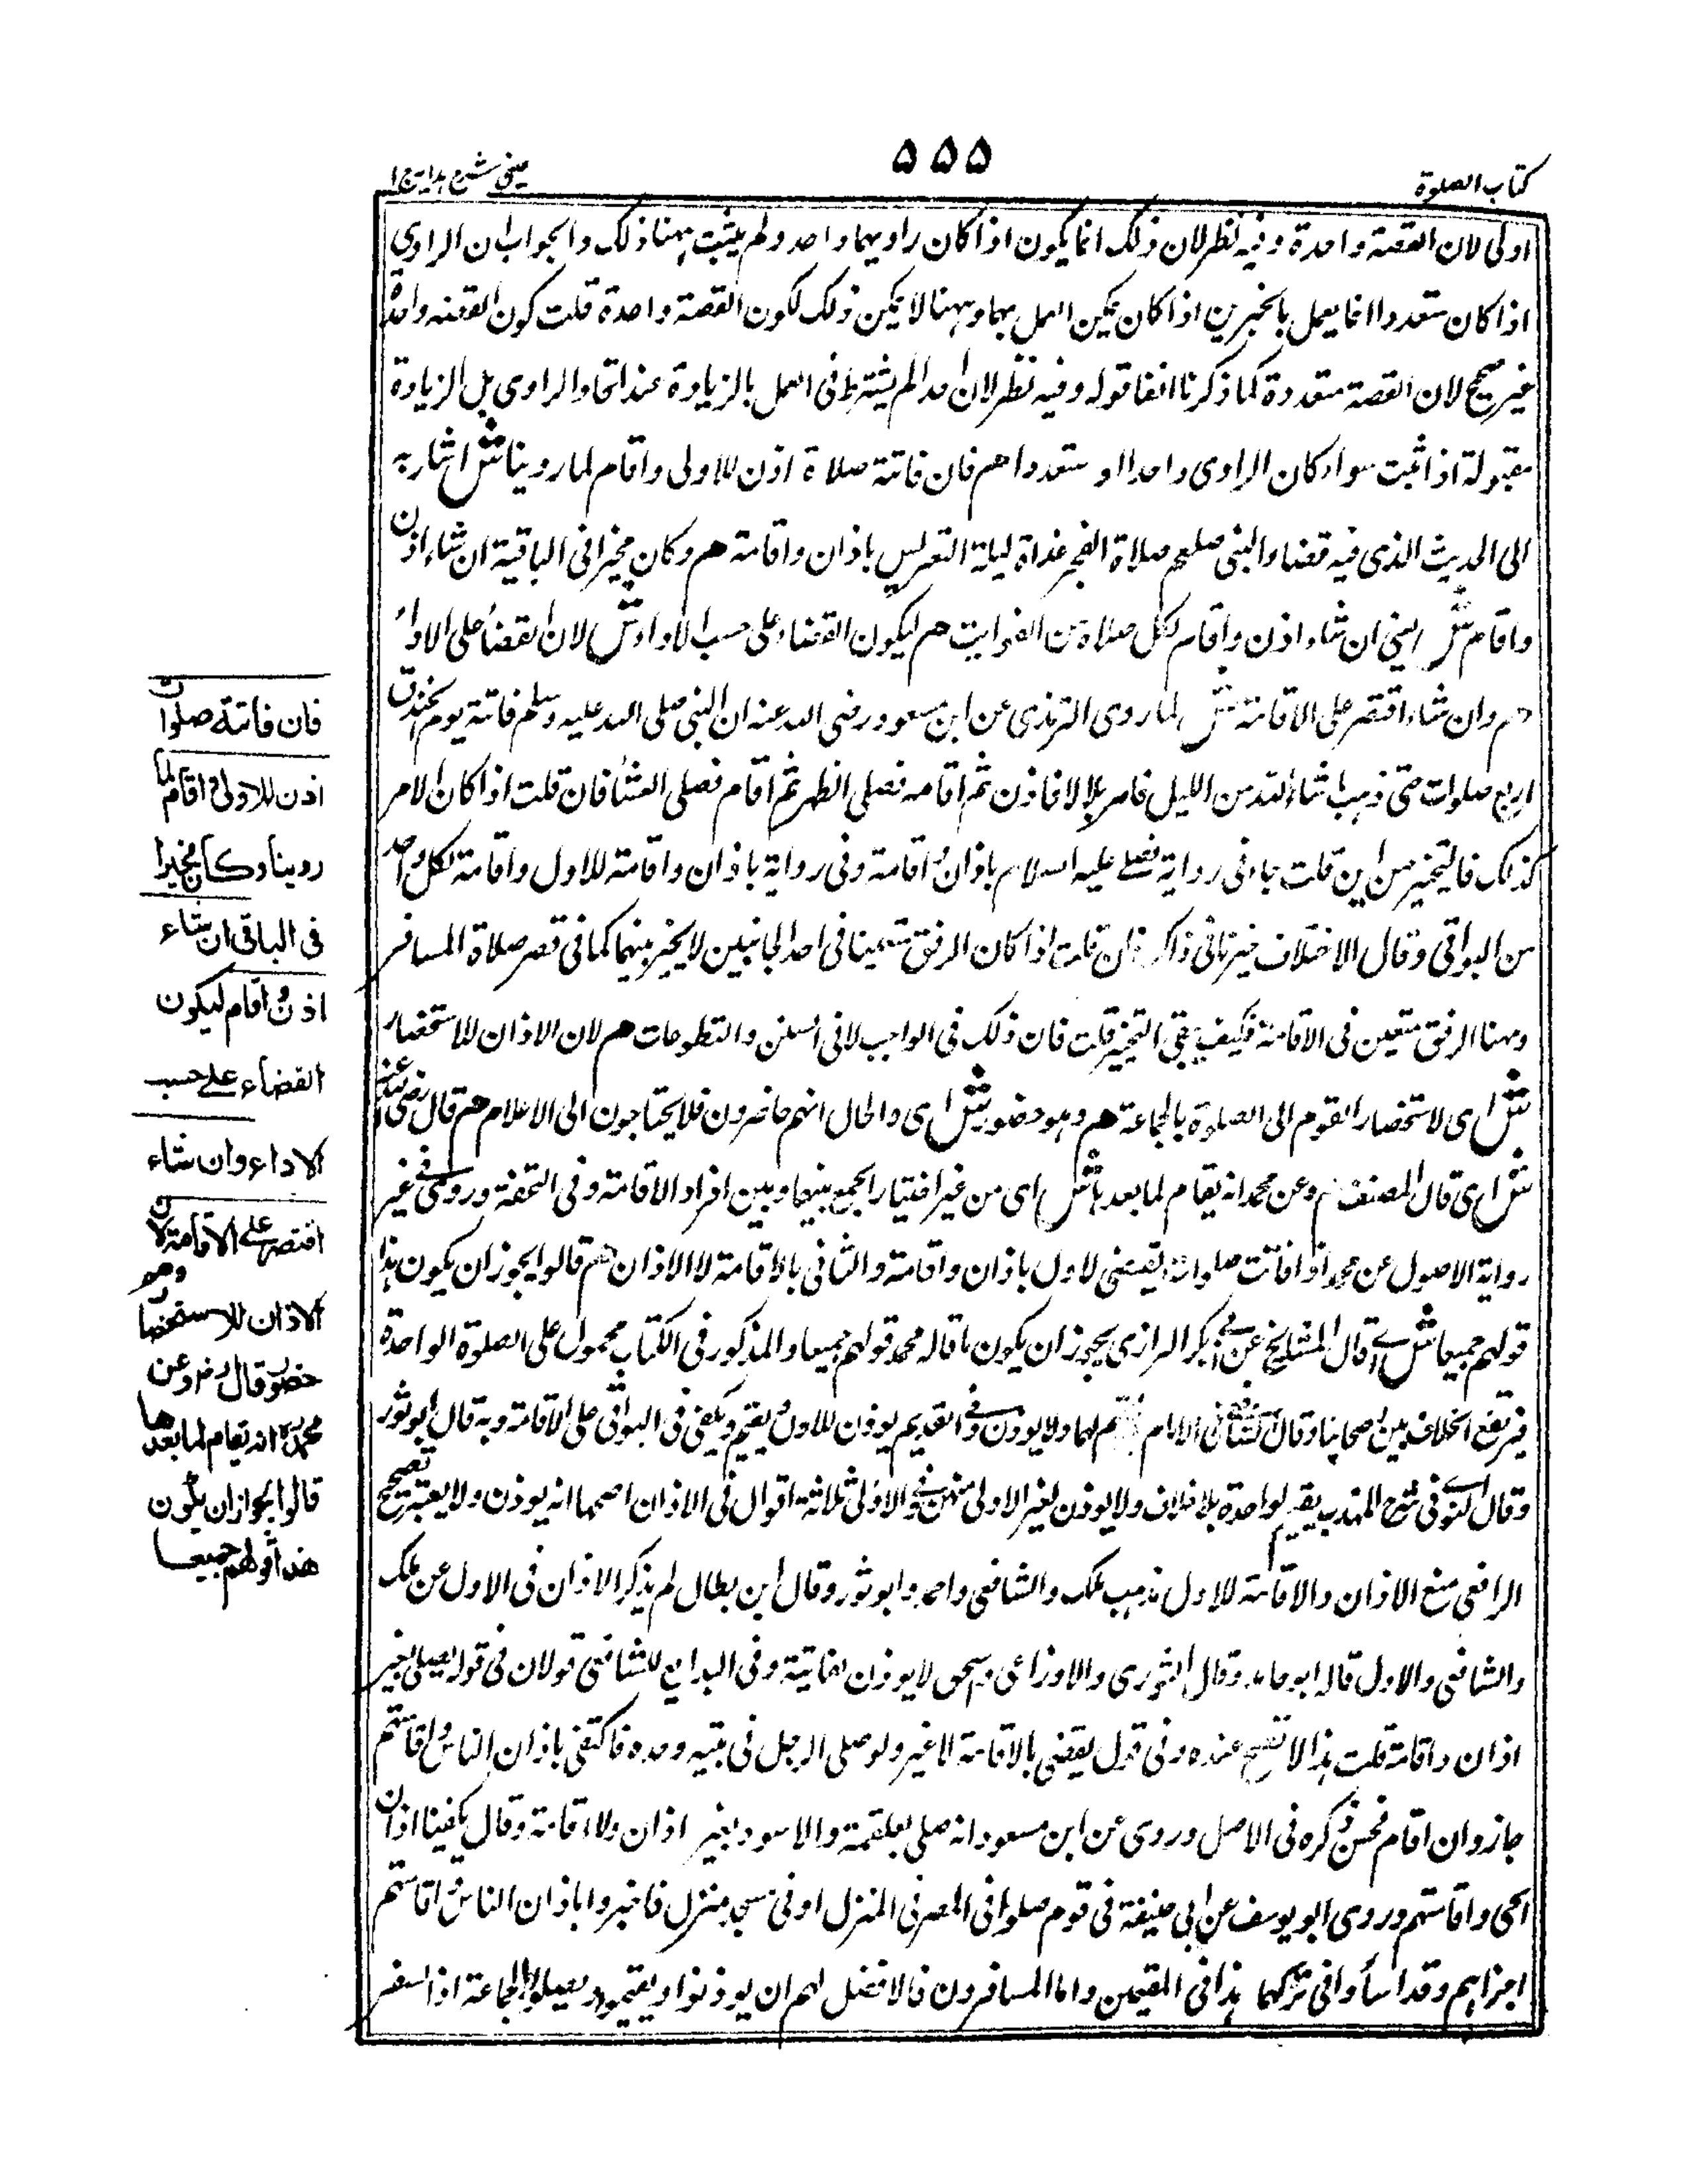 كتاب الصلوة
۵۵۵
عینی شرح ہدایہ ج ا
اولى لان القصة واحدة وفيه نظر لان ذلك انما يكون اذا كان راويهما واحد ولم يثبت ههنا ذلك والجواب ان الراوى
اذا كان متعددا انما يعمل بالخبرين اذا كان يمكن العمل بهما وههنا لا يمكن ذلك لكون القصة واحدة قلت كون القصة واحدة
غير صحيح لان القصة متعددة كما ذكرنا انفا قوله وفيه نظر لان احدا لم يشترط فى العمل بالزيادة عند اتحاد الراوى بل الزيادة
مقبولة اذا ثبت سواء كان الراوى واحدا او متعددا هم فان فاتته صلاة اذن للاولى واقام لما روينا ش اشار به
الى الحديث الذى فيه قضاء النبى صلعم صلاة الفجر غداة ليلة التعريس باذان واقامة هم وكان مخيرا فى الباقية ان شاء اذن
واقام ش يعنى ان شاء اذن واقام لكل صلاة من الفوايت هم ليكون القضاء على حسب الاداء ش لان القضاء على الاداء
هم وان شاء اقتصر على الاقامة ش لما روى الترمذى عن ابن مسعود رضى الله عنه ان النبى صلى الله عليه وسلم فاتته يوم الخندق
اربع صلوات حتى ذهب ما شاء الله من الليل فامر بلالا فاذن ثم اقامه فصلى الظهر ثم اقام فصلى العشاء فان قلت اذا كان الامر
كذلك فالتخيير من اين قلت جاء فى رواية فصلے عليه السلام باذان واقامة وفى رواية باذان واقامة للاول واقامة لكل واحد
من البواقى وقال الاختلاف خيرنا فى ذلك فان قلت اذا كان الرفق متعينا فى احد الجانبين لا يخير بينهما كما فى قصر صلاة المسافر
وههنا الرفق متعين فى الاقامة فكيف بقى التخيير قلت فان ذلك فى الواجب لا فى السنن والتطوعات هم لان الاذان للاستحضار
ش اى لاستحضار القوم الى الصلوة بالجماعة هم وهو حضور ش اى والحال انهم حاضرون فلا يحتاجون الى الاعلام هم قال رضى الله عنه
ش اى قال المصنف هم وعن محمد انه يقام لما بعدها ش اى من غير اختيار الجمع بينهما وبين افراد الاقامة وفى التحفة وروى فى غير
رواية الاصول عن محمد اذا فاتت صلوات يقضى الاول باذان واقامة والثانى بالاقامة لا الاذان هم قالوا يجوز ان يكون هذا
قولهم جميعا ش اى قال المشايخ عن ابى بكر الرازى يجوز ان يكون ما قاله محمد قولهم جميعا والمذكور فى الكتاب محمول على الصلوة الواحدة
فيرتفع الخلاف بين اصحابنا وقال الشافعى فى الام يقيم لها ولا يوذن وفى القديم يوذن للاول ويقيم ويكتفى فى البواقى على الاقامة وبه قال ابو ثور
وقال النووى فى شرح المهذب يقيم لواحدة بلا خلاف ولا يوذن لغير الاولى منهن وفى الاولى ثلاثة اقوال فى الاذان اصحها انه يوذن ولا يعتبر بتصحيح
الرافعى منع الاذان والاقامة للاول مذهب ملك والشافعى واحمد وابو ثور وقال ابن بطال لم يذكر الاذان فى الاول عن ملك
والشافعى والاول قاله ابو حامد وقال الثورى والاوزاعى واسحق لا يوذن لفايتة وفى البدايع للشافعى قولان فى قول يصلى بغير
اذان واقامة قلت هذا لا يصح عنده وفى قول يقضى بالاقامة لا غير ولو صلى الرجل فى بيته وحده فاكتفى باذان الناس واقامتهم
جاز وان اقام فحسن ذكره فى الاصل وروى عن ابن مسعود انه صلى بعلقمة والاسود بغير اذان ولا اقامة وقال يكفينا اذان
الحى واقامتهم وروى ابو يوسف عن ابى حنيفة فى قوم صلوا فى المصر فى المنزل او فى مسجد منزل فاخبروا باذان الناس واقامتهم
اجزاهم وقد اساؤا فى تركهما هذا فى المقيمين واما المسافرون فالافضل لهم ان يوذنوا ويقيموا ويصلوا بالجماعة اذا السفر
فان فاتته صلوات
اذن للاولى واقام لما
روينا وكان مخيرا
فى الباقى ان شاء
اذن واقام ليكون
القضاء على حسب
الاداء وان شاء
اقتصر على الاقامة لان
الاذان للاستحضار وهو
حضور قال رض وعن
محمد رح انه يقام لما بعدها
قالوا يجوز ان يكون
هذا قولهم جميعا